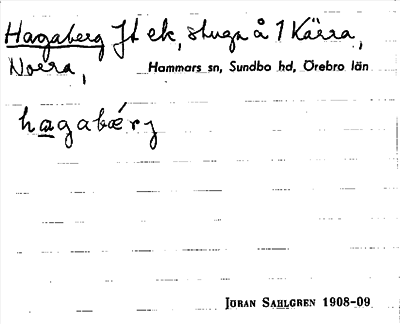 Hagaberg Jt ek, stuga å 1 Kärra,
Norra,
Hammars sn, Sundbo hd, Örebro län
hagabærj
JÖRAN SAHLGREN 1908-09